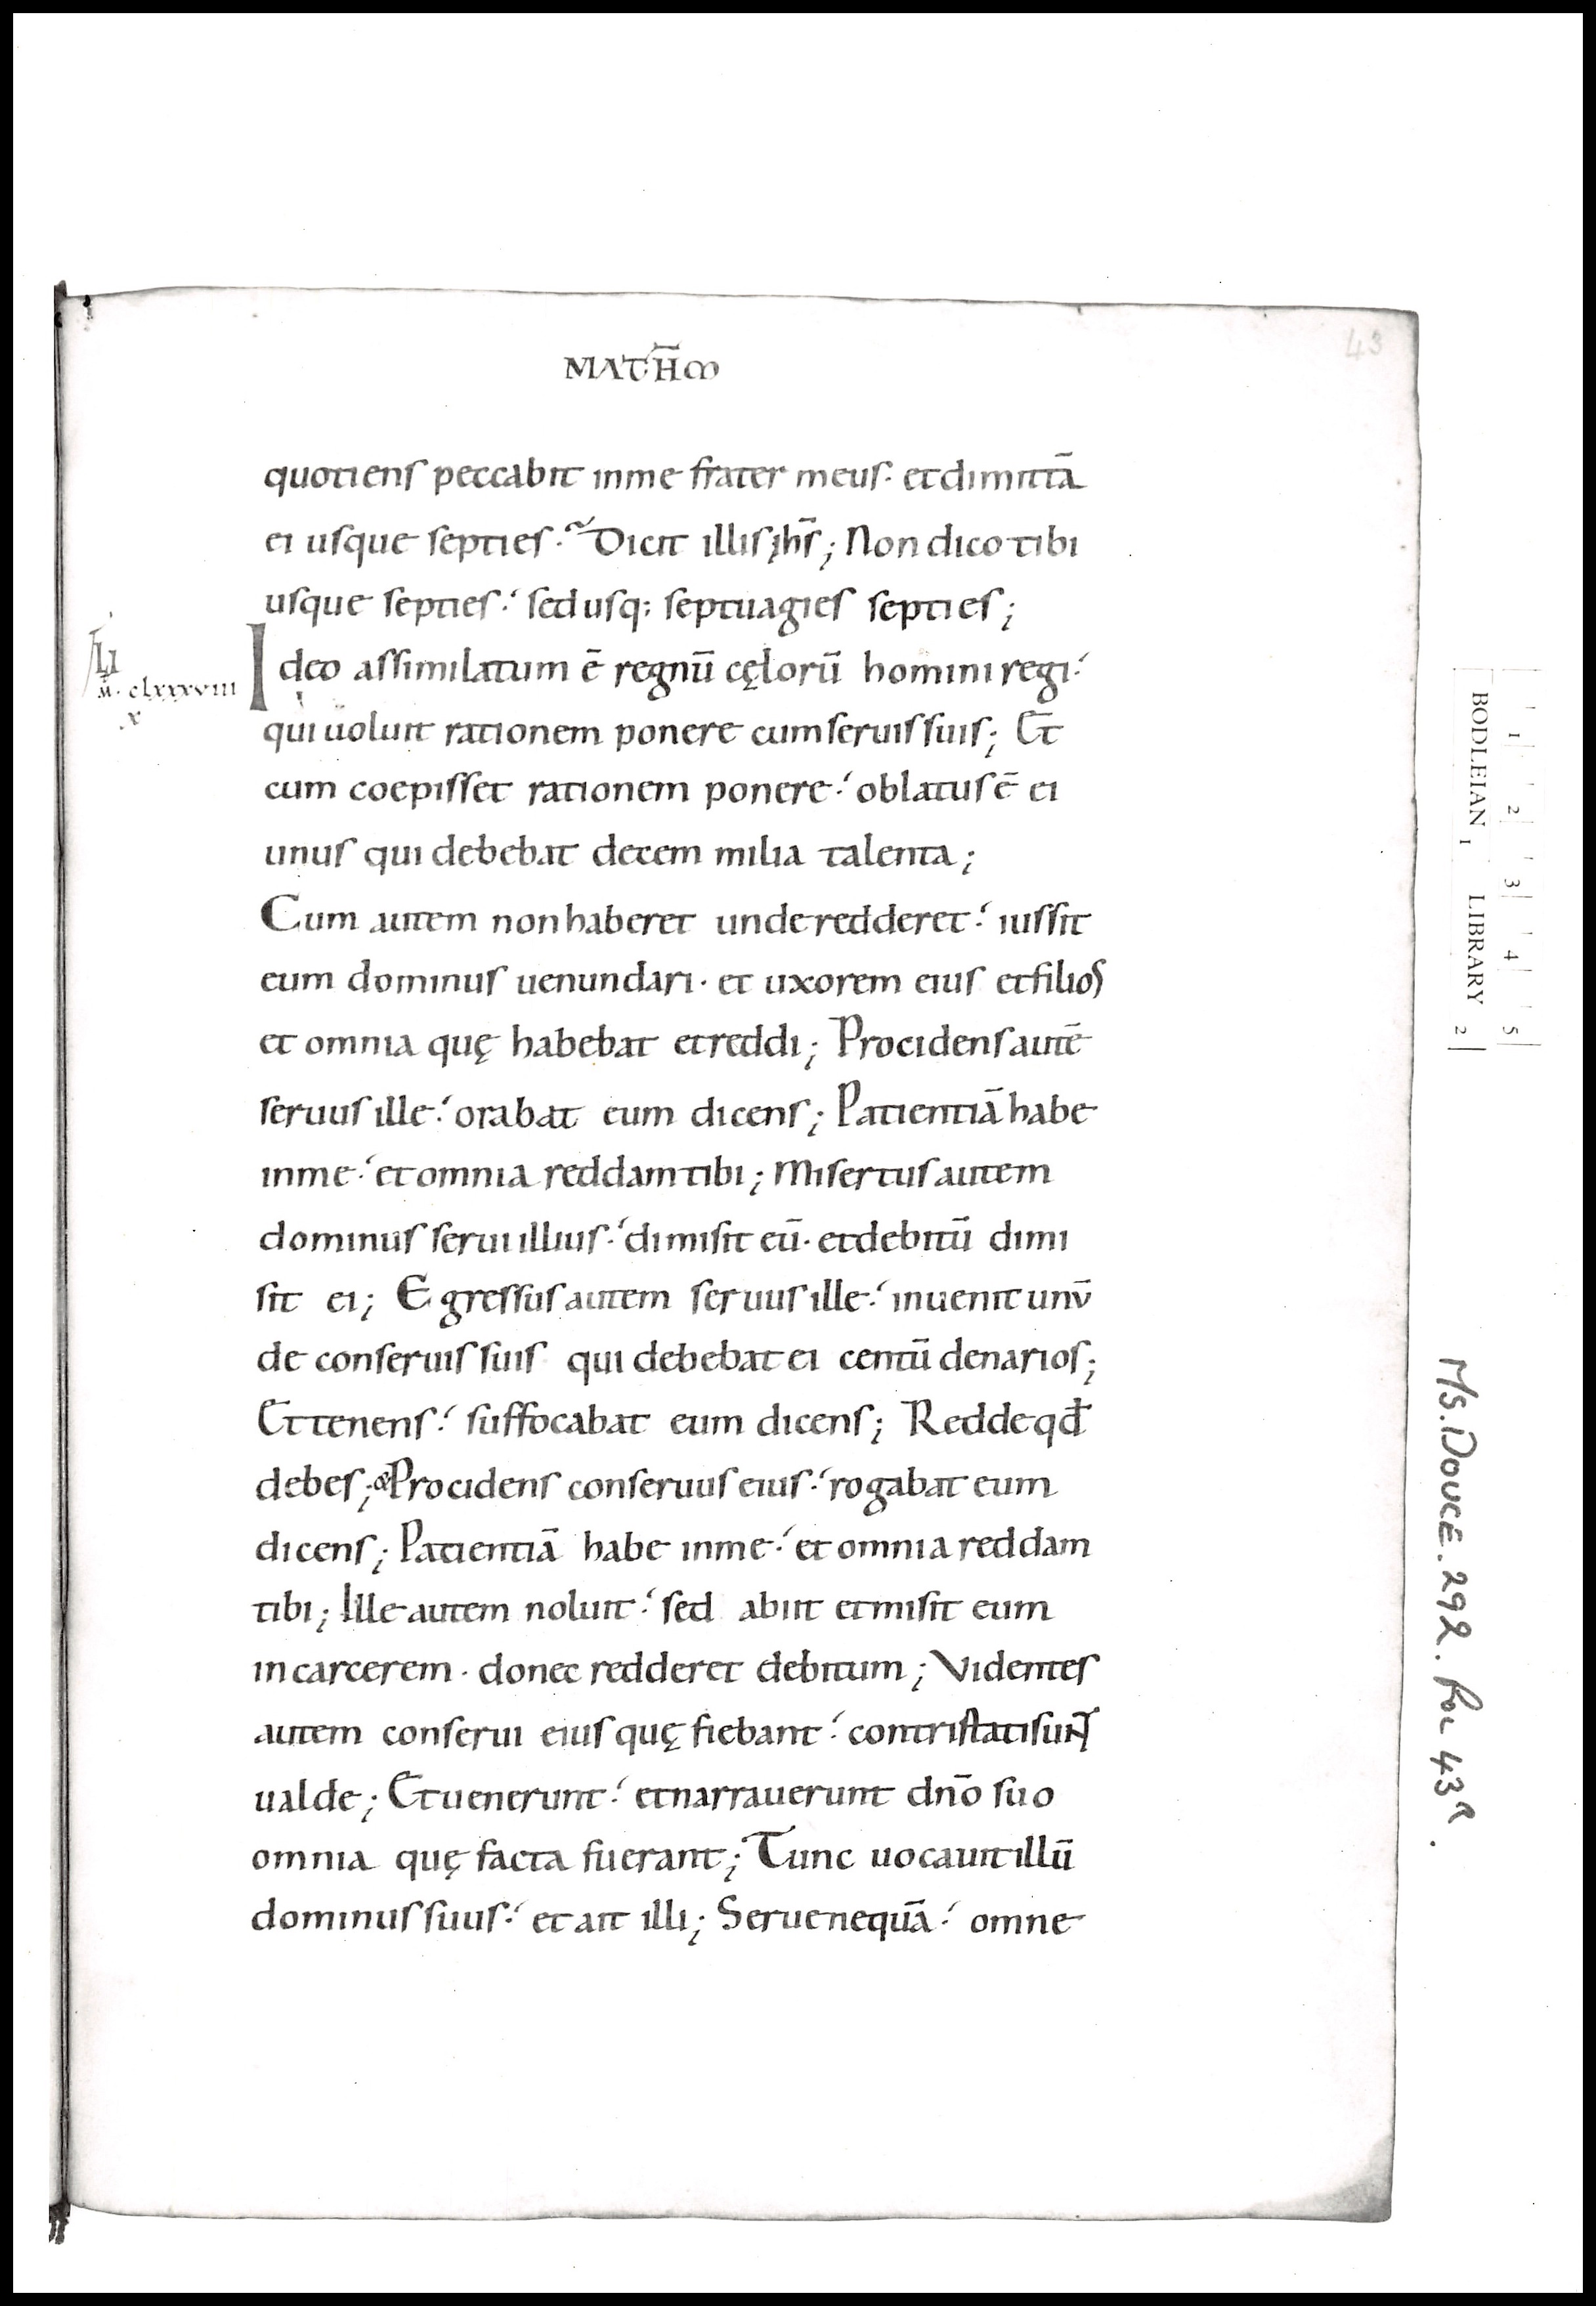 43
MATH̅M
quotiens peccabit inme frater meus· et dimittā
ei usque septies· Dicit illis ih̅s; Non dico tibi
usque septies· sed usq; septuagies septies;
LI
M· clxxxviii
x
Ideo assimilatum ē regnū cęlorū homini regi·
qui uoluit rationem ponere cum seruis suis; Et
cum coepisset rationem ponere· oblatus ē ei
unus qui debebat decem milia talenta;
Cum autem non haberet unde redderet· iussit
eum dominus uenundari· et uxorem eius et filios
et omnia quę habebat et reddi; Procidens autē
seruus ille· orabat eum dicens; Patientiā habe
inme· et omnia reddam tibi; Misertus autem
dominus serui illius· dimisit eū· et debitū dimi
sit ei; Egressus autem seruus ille· inuenit unv̄
de conseruis suis qui debebat ei centū denarios;
Et tenens· suffocabat eum dicens; Redde qđ
debes; & Procidens conseruus eius· rogabat eum
dicens; Patientiā habe inme· et omnia reddam
tibi; Ille autem noluit· sed abiit et misit eum
in carcerem· donec redderet debitum; Videntes
autem conserui eius quę fiebant· contristati sunt
ualde; Et uenerunt· et narrauerunt dn̅o suo
omnia quę facta fuerant; Tunc uocauit illū
dominus suus· et ait illi; Serue nequā· omne
BODLEIAN LIBRARY
1 2
1 2 3 4 5
MS. DOUCE. 292. Fol 43ᴿ.